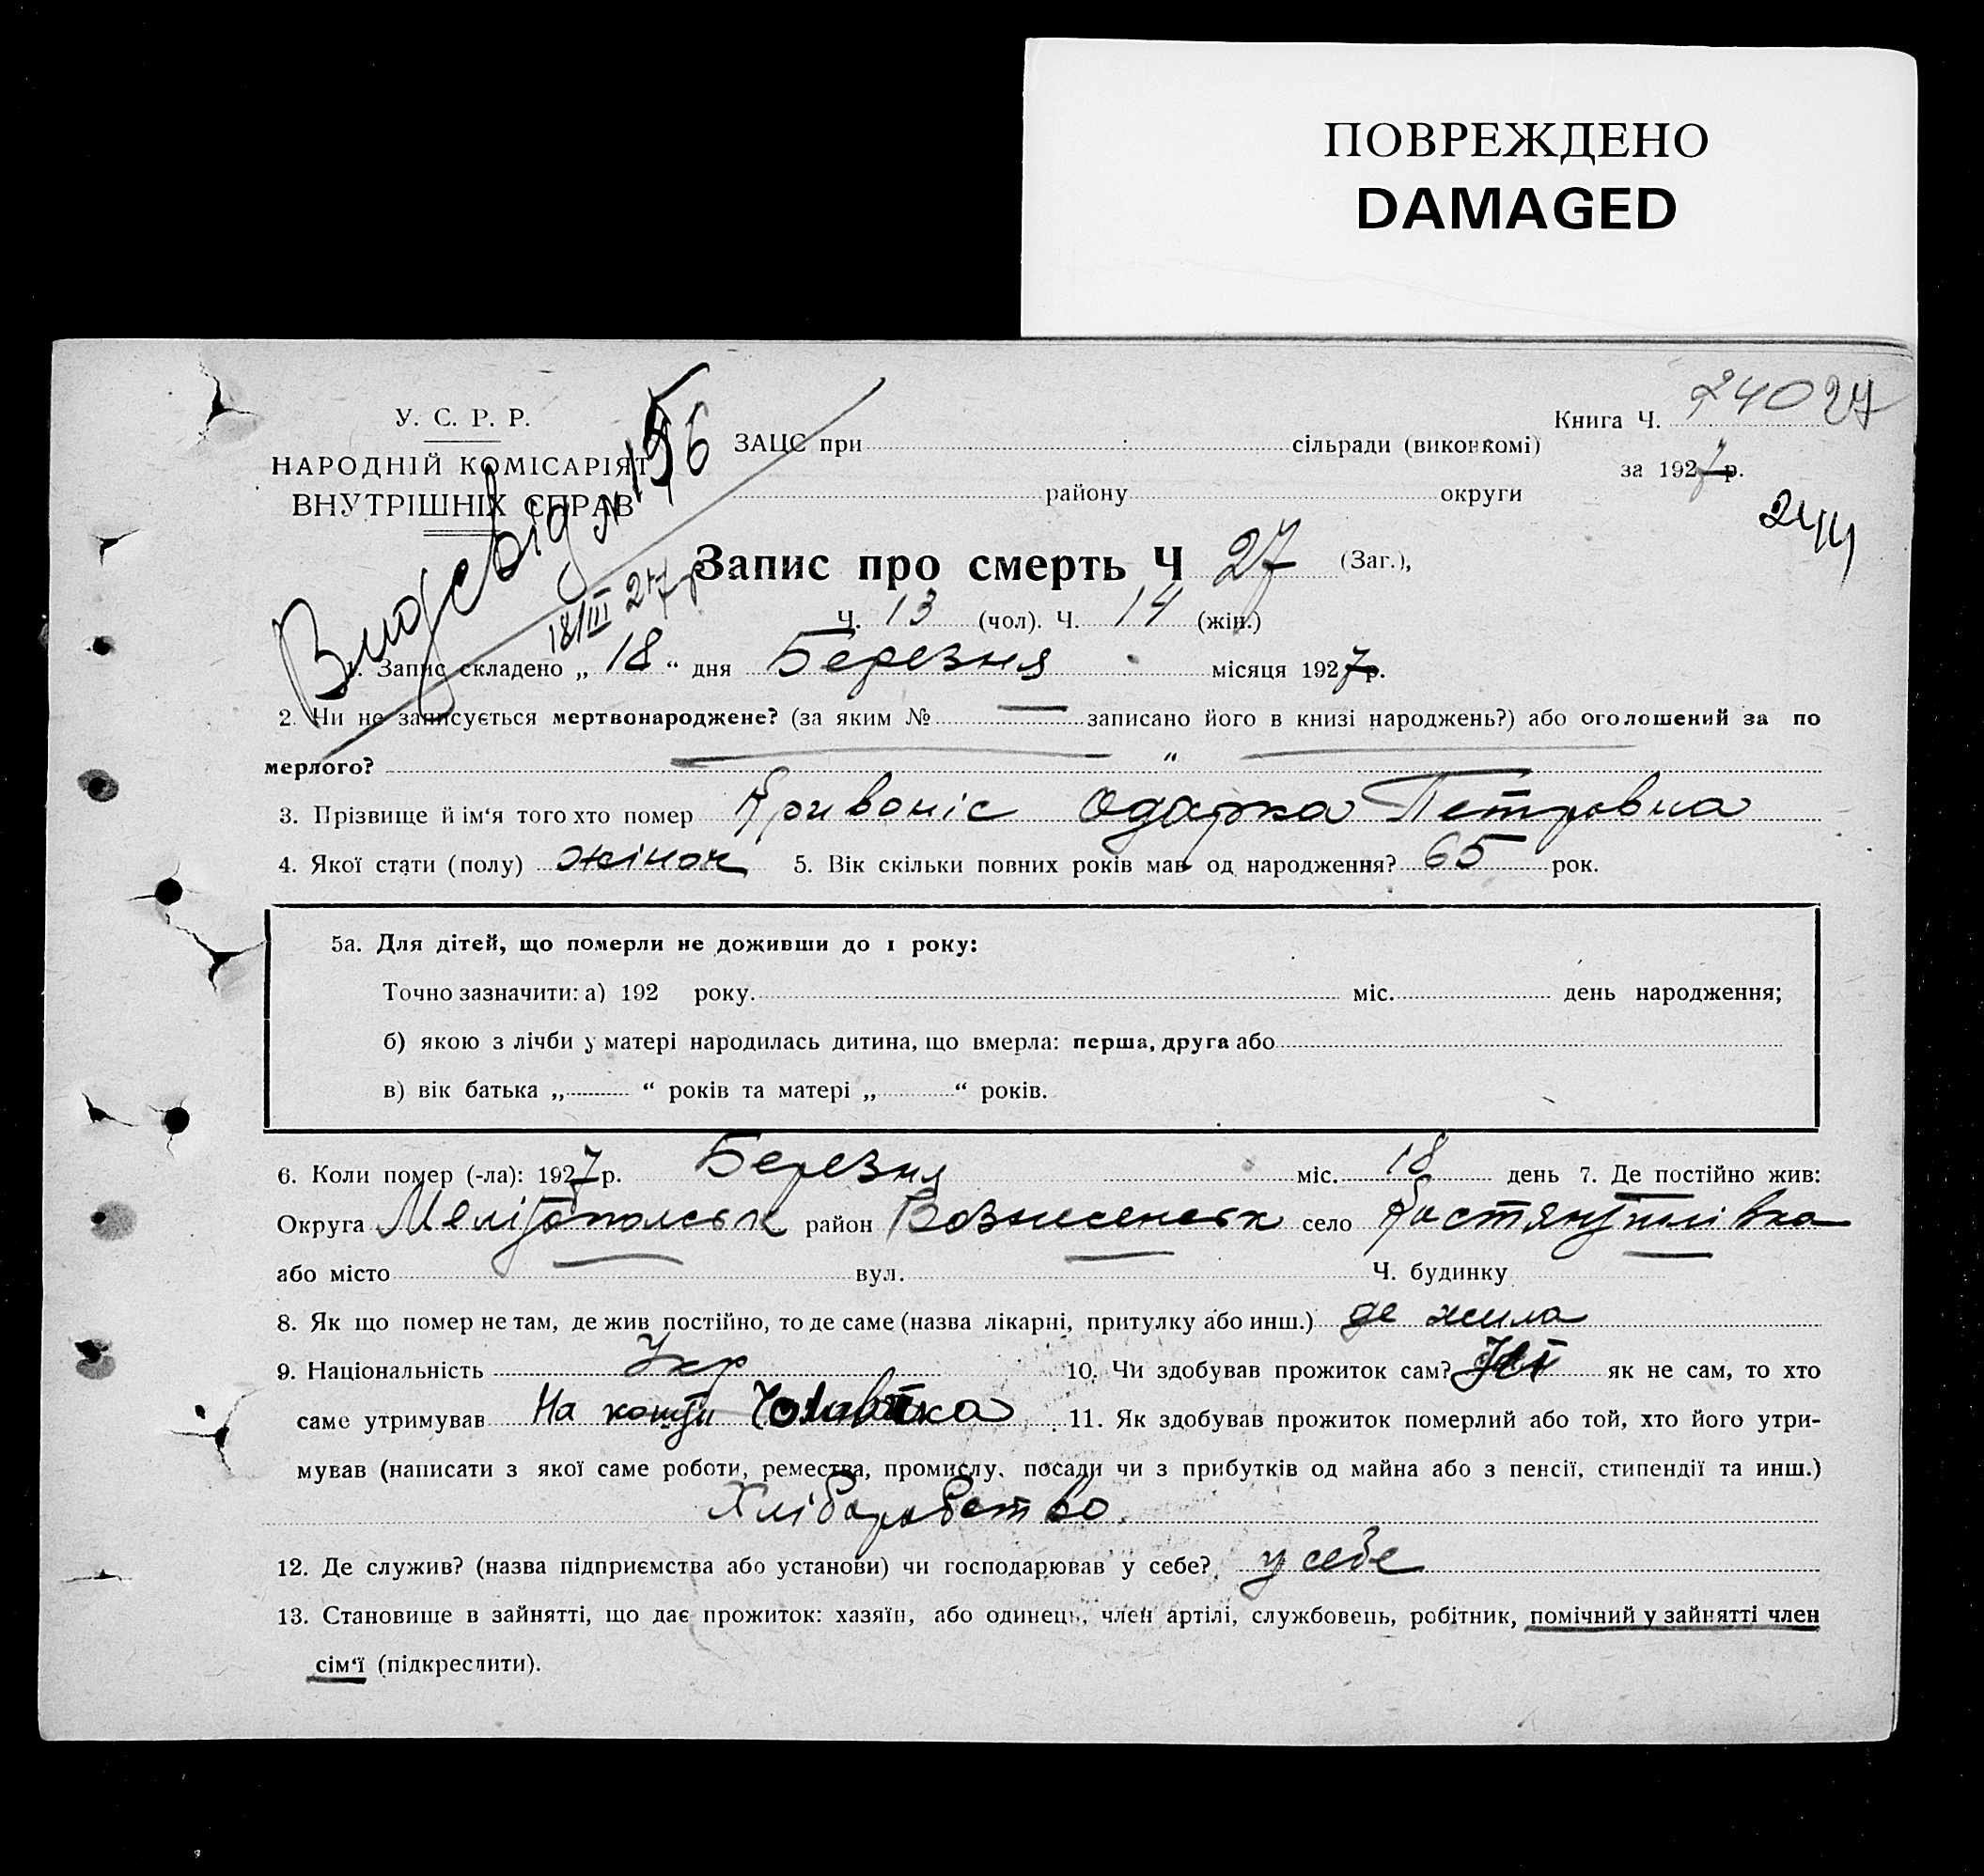 ПОВРЕЖДЕНО
DAMAGED
У. С. Р. Р.
НАРОДНІЙ КОМІСАРІЯТ
ВНУТРІШНІХ СПРАВ
ЗАЦС при сільради (виконкомі)
району округи
Книга Ч. 240 27
за 1927 р.
244
Вид свід № 156
18/III 27 р
Запис про смерть Ч 27 (Заг.),
Ч. 13 (чол). Ч. 14 (жін.)
1. Запис складено „ 18 “ дня Березня місяця 1927 р.
2. Чи не записується мертвонароджене? (за яким № — записано його в книзі народжень?) або оголошений за по
мерлого? — “ —
3. Прізвище й ім‘я того хто помер Кривоніс Одарка Петровна
4. Якої стати (полу) жіноч 5. Вік скільки повних років мав од народження? 65 рок.
5а. Для дітей, що померли не доживши до 1 року:
Точно зазначити: а) 192 року. міс. день народження;
б) якою з лічби у матері народилась дитина, що вмерла: перша, друга або
в) вік батька „ “ років та матері „ “ років.
6. Коли помер (-ла): 1927 р. Березня міс. 18 день 7. Де постійно жив:
Округа Мелітопольськ район Вознесенськ село Костянтинівка
або місто вул. Ч. будинку
8. Як що помер не там, де жив постійно, то де саме (назва лікарні, притулку або инш.) де жила
9. Національність Укр 10. Чи здобував прожиток сам? як не сам, то хто
саме утримував На кошти Чоловіка 11. Як здобував прожиток померлий або той, хто його утри-
мував (написати з якої саме роботи, ремества, промислу, посади чи з прибутків од майна або з пенсії, стипендії та инш.)
Хліборобство.
12. Де служив? (назва підприємства або установи) чи господарював у себе? у себе
13. Становище в зайнятті, що дає прожиток: хазяїн, або одинець, член артілі, службовець, робітник, помічний у зайнятті член
сім‘ї (підкреслити).